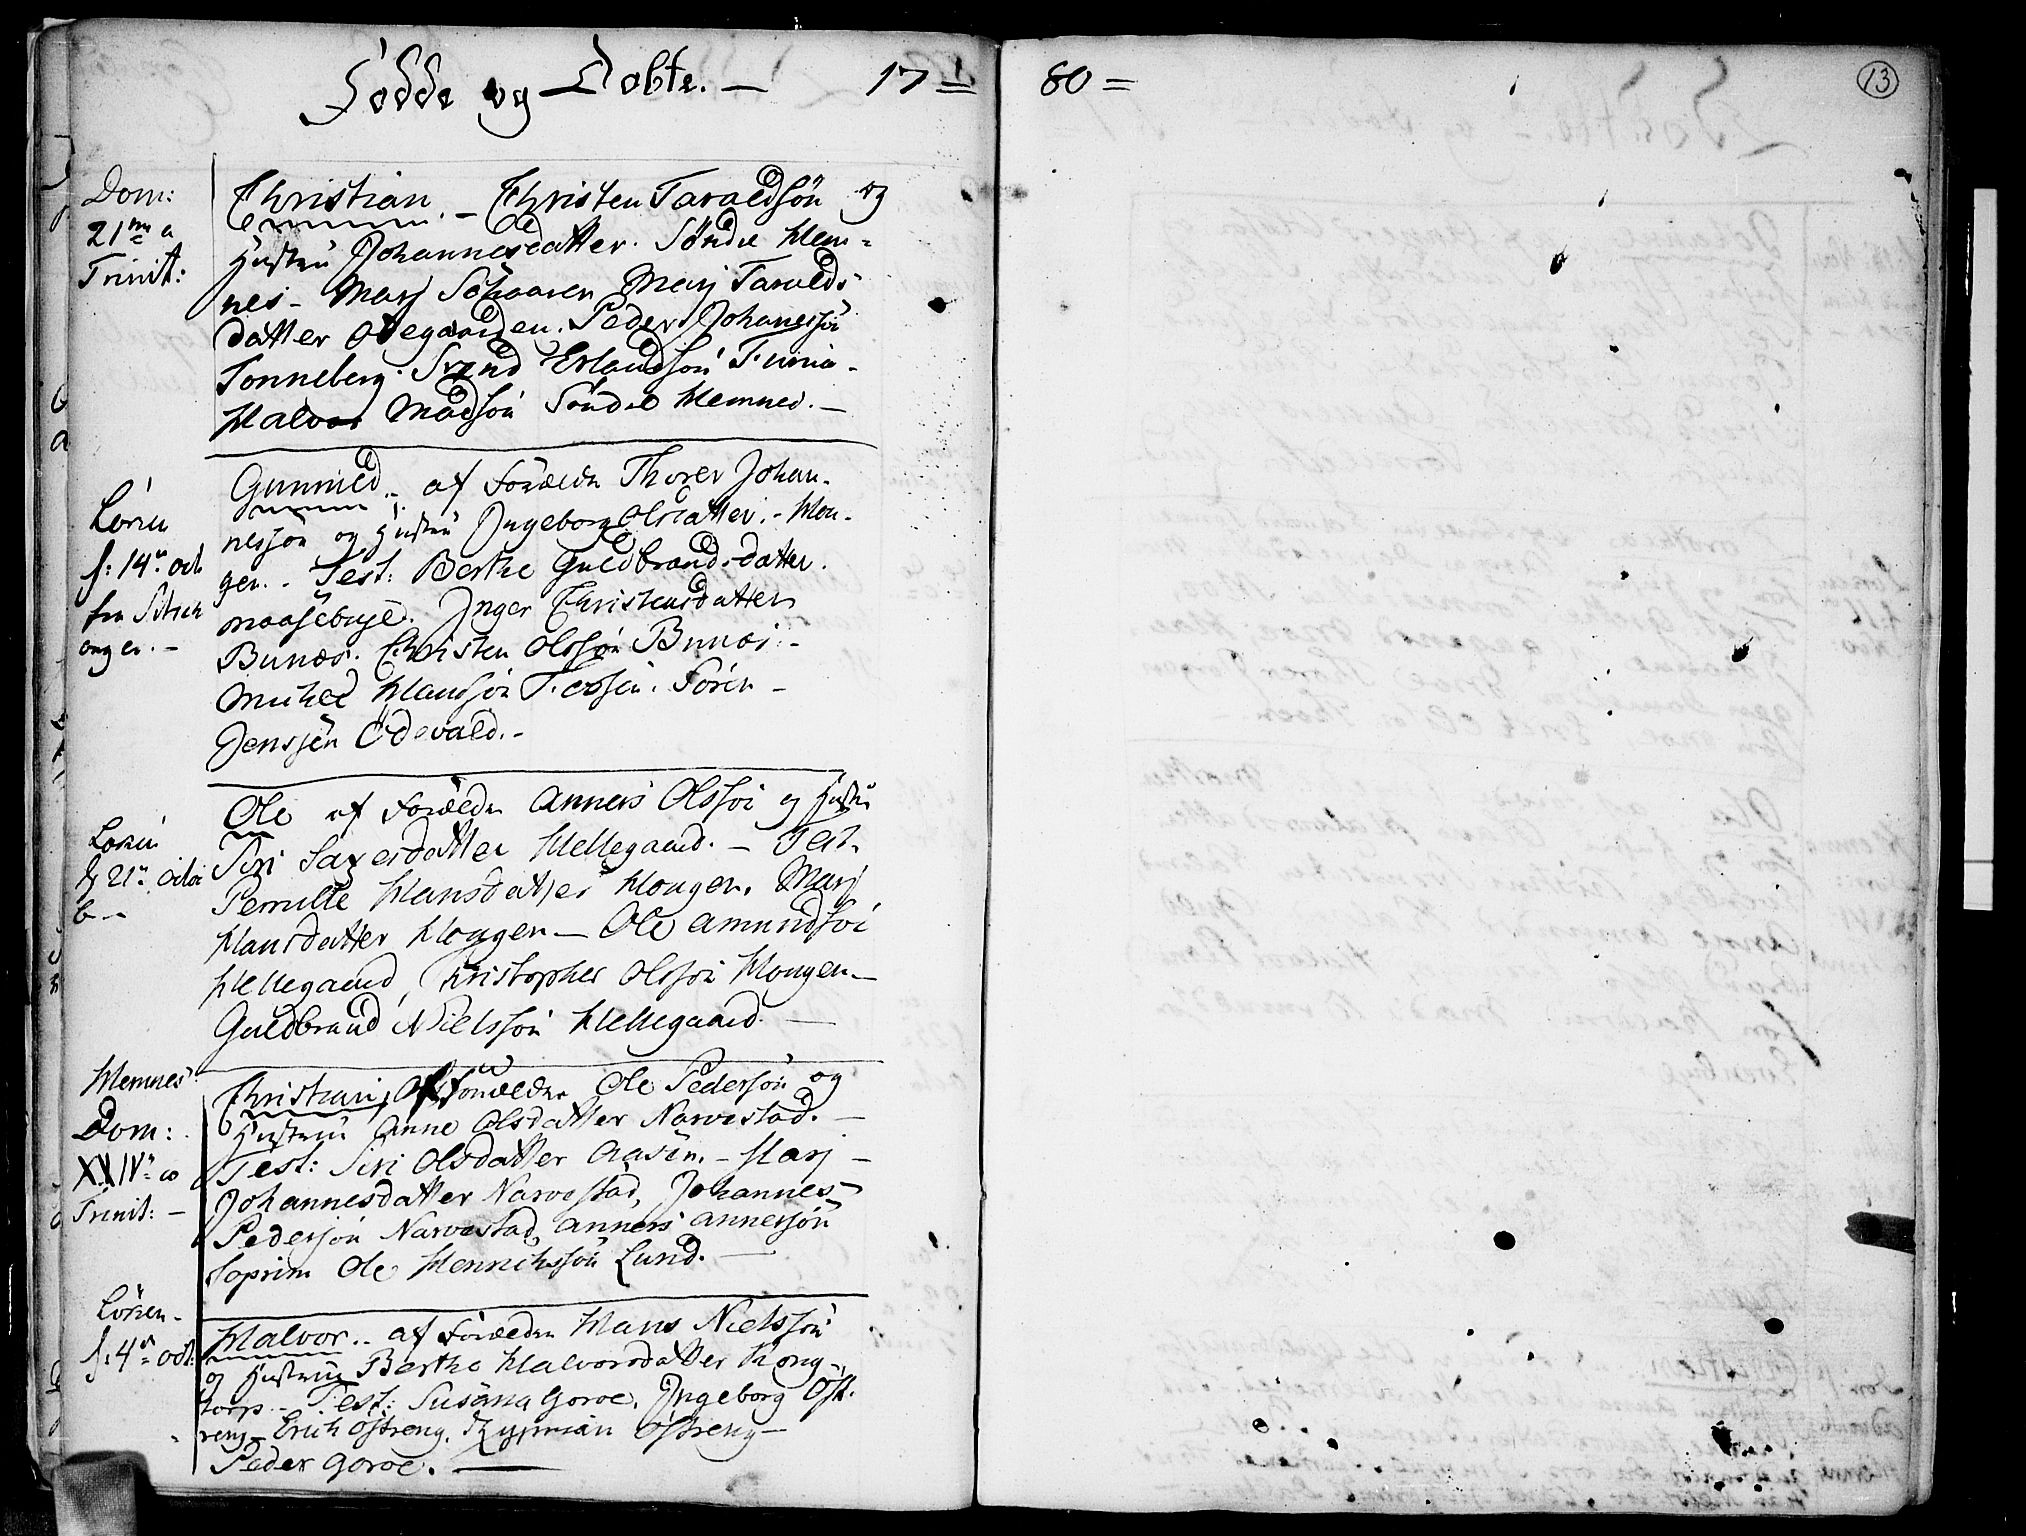 Födde og Döbte. — 17 =
80 =
13
Dom:
21me a
Trinit:
Christian. — Christen Taraldsön og
Hustru Johannesdatter. Söndre Hem=
nes — Marj Schaaren Marj Taralds
datter Ödegaarden. Peder Johanessön
Tonneberg. Svend Erlandsön
Halvor Madsön Söndre Hemnes. —
Lören
f: 14de oct
fra
anger. —
Gunnild. — af Forældre Thorer Johan-
nessön og Hustru Jngeborg Olsdatter. — Hou-
gen. — Test: Berthe Guldbrandsdatter.
Jnger Christensdatter
Bunæs. Christen Olssön Bunæs. —
Hanssön Fossen. Sören —
Jenssön Ödevald. —
Lören
f 21de
b —
Ole af Forældre Anners Olssön og Hustru
Siri Saxesdatter Hellegaard. — Test.
Pernille Hansdatter Hougen. Marj
Hansdatter Hougen — Ole Amundsön
Hellegaard, Christopher Olssön Hougen —
Guldbrand Nielssön Hellegaard. —
Hemnes
Dom:
XXIVde a
Trinit: —
Christian, Af Forældre Ole Pedersön og
Hustrue Anne Olsdatter Narvestad. —
Test: Siri Olsdatter Aasen. — Marj —
Johannesdatter Narvestad, Johannes
Pedersön Narvestad, Anners Annersön
Soprim Ole Henrichssön Lund. —
Lören —
f: 4de oct:
Halvor. — af Forældre Hans Nielssön
og Hustrue Berthe Halvorsdatter Kong-
torp — Test: Susana Goroe. Jngeborg Öst-
reng — Erich Östreng, Zyprian Östreng —
Peder Goroe. —